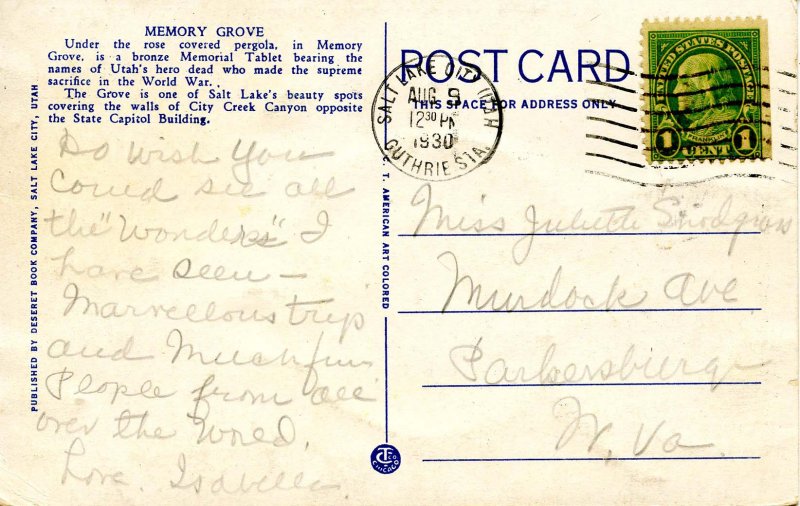 MEMORY GROVE
Under the rose covered pergola, in Memory
Grove, is a bronze Memorial Tablet bearing the
names of Utah's hero dead who made the supreme
sacrifice in the World War.
The Grove is one of Salt Lake's beauty spots
covering the walls of City Creek Canyon opposite
the State Capitol Building.
Do wish you
could see all
the "Wonders" I
have seen —
Marvellous trip
and much fun
People from all
over the World.
Love. Isabelle.
PUBLISHED BY DESERET BOOK COMPANY, SALT LAKE CITY, UTAH
C. T. AMERICAN ART COLORED
CHICAGO
POST CARD
THIS SPACE FOR ADDRESS ONLY
SALT LAKE CITY UTAH
AUG 9
12 30 PM
1930
GUTHRIE STA.
UNITED STATES POSTAGE
FRANKLIN
1 CENT 1
Miss Juliette Snodgrass
Murdock Ave.
Parkersburg
W. Va.